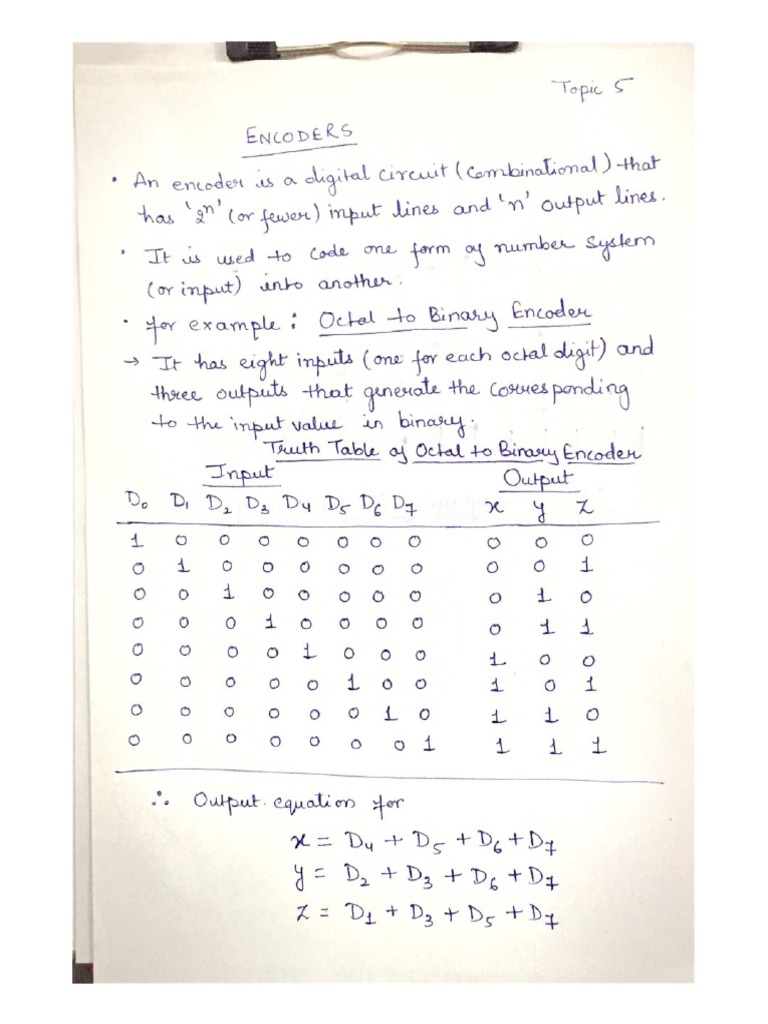 Topic 5
ENCODERS
• An encoder is a digital circuit (combinational) that
has '2ⁿ' (or fewer) input lines and 'n' output lines.
• It is used to code one form of number system
(or input) into another.
• for example: Octal to Binary Encoder
→ It has eight inputs (one for each octal digit) and
three outputs that generate the corresponding
to the input value in binary.
Truth Table of Octal to Binary Encoder
Input Output
D₀ D₁ D₂ D₃ D₄ D₅ D₆ D₇ x y z
1 0 0 0 0 0 0 0 0 0 0
0 1 0 0 0 0 0 0 0 0 1
0 0 1 0 0 0 0 0 0 1 0
0 0 0 1 0 0 0 0 0 1 1
0 0 0 0 1 0 0 0 1 0 0
0 0 0 0 0 1 0 0 1 0 1
0 0 0 0 0 0 1 0 1 1 0
0 0 0 0 0 0 0 1 1 1 1
∴ Output equation for
x = D₄ + D₅ + D₆ + D₇
y = D₂ + D₃ + D₆ + D₇
z = D₁ + D₃ + D₅ + D₇